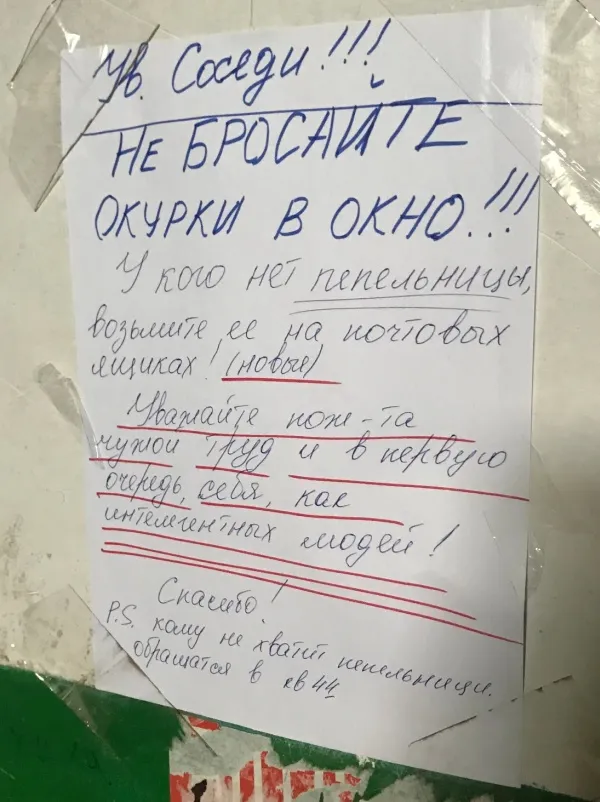 Ув. Соседи!!!
НЕ БРОСАЙТЕ
ОКУРКИ В ОКНО!!!
У кого нет пепельницы,
возьмите ее на почтовых
ящиках! (новые)
Уважайте пож-та
чужой труд и в первую
очередь, себя, как
интелегентных людей!
Спасибо!
P.S. кому не хватит пепельници.
обращатся в кв 44